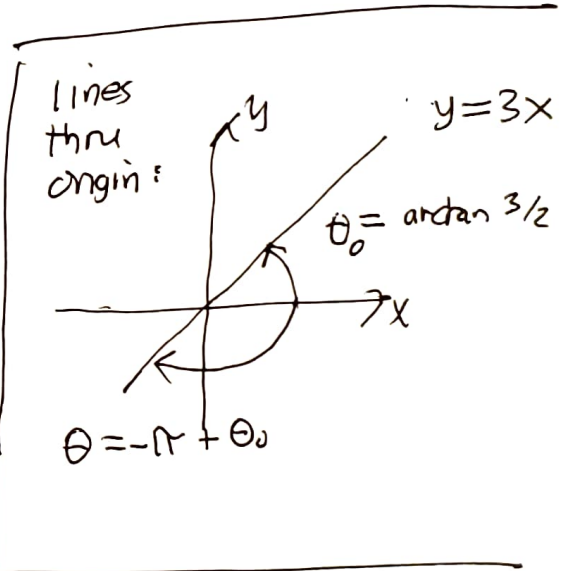 lines
thru
origin:
y
y=3x
θ₀= arctan 3/2
x
θ=-π+θ₀